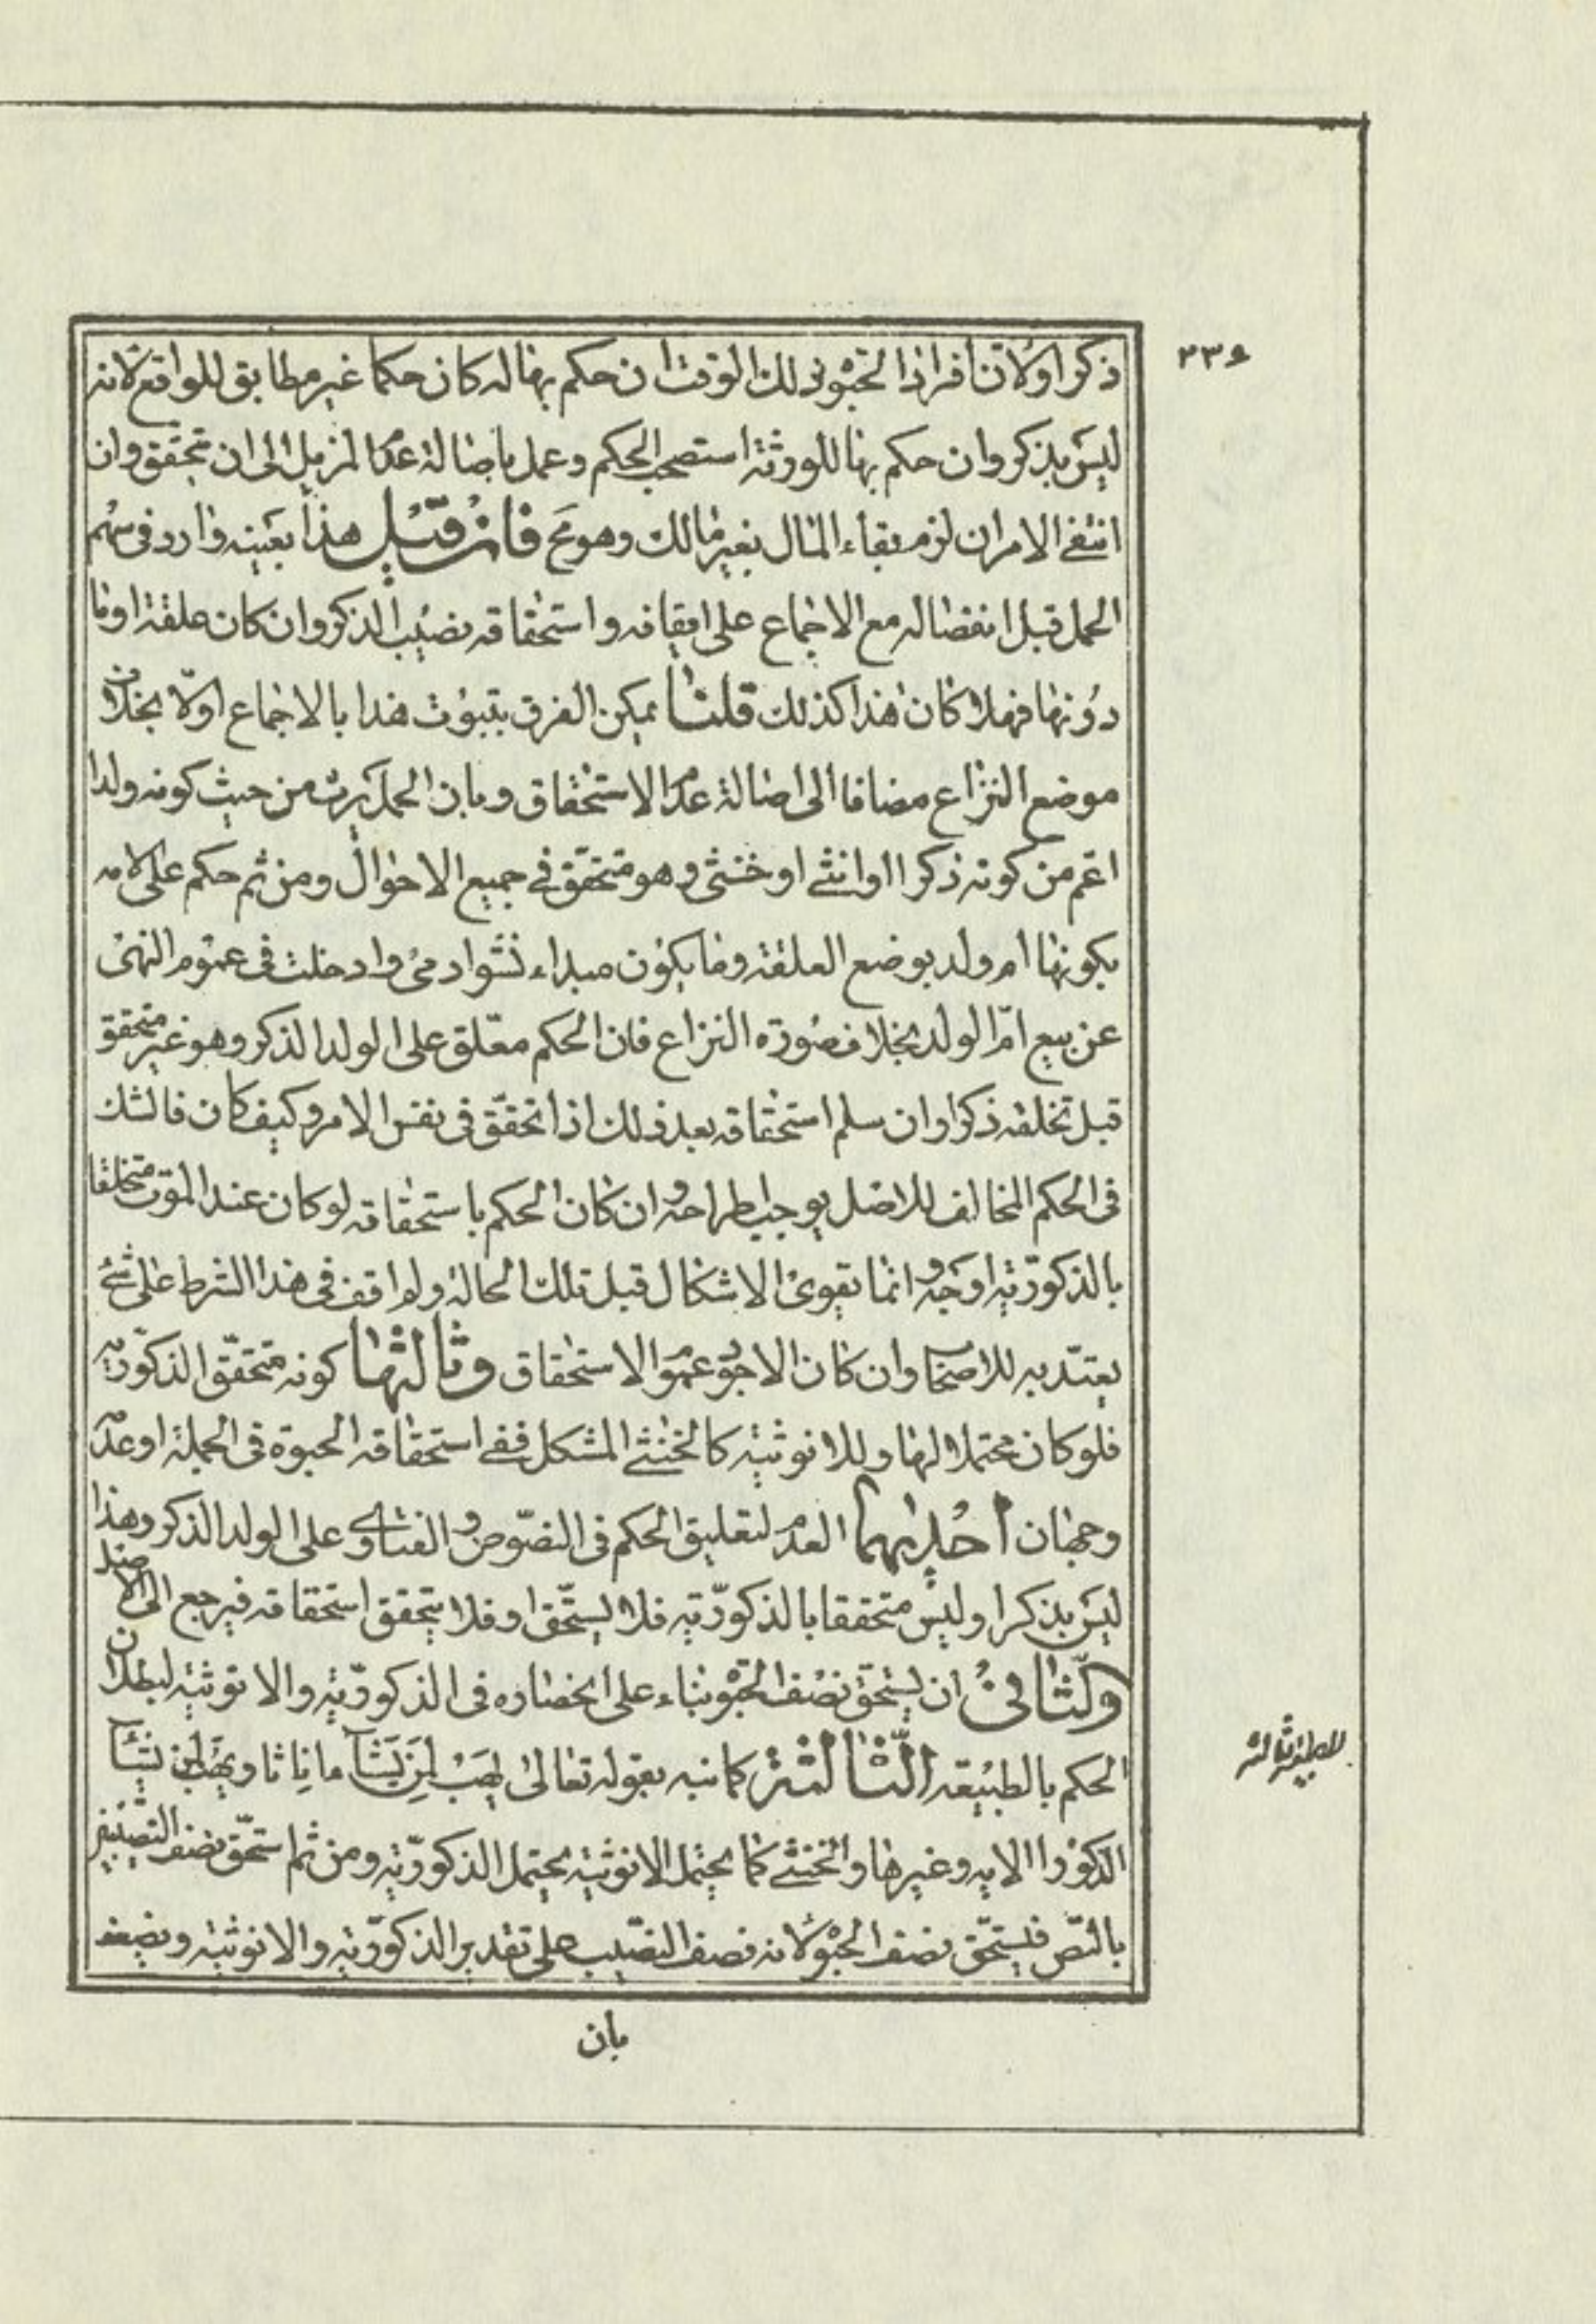 ٢٣٤
ذكرا ولان افراد الحبوة ذلك الوقت ان حكم بها له كان حكما غير مطابق للواقع لانه
ليس بذكر وان حكم بها للورثة استصحب الحكم وعمل باصالة عدم المزيل الى ان تحقق وان
انتفى الامران لزم بقاء المال بغير مالك وهو مح فان قيل هذا بعينه وارد في سهم
الحمل قبل انفصاله مع الاجماع على ايقافه واستحقاقه نصيب الذكر وان كان علقة او ما
دونها فهلا كان هذا كذلك قلنا يمكن الفرق بثبوت هذا بالاجماع اولا بخلاف
موضع النزاع مضافا الى اصالة عدم الاستحقاق وبان الحمل يرث من حيث كونه ولدا
اعم من كونه ذكرا او انثى او خنثى وهو متحقق في جميع الاحوال ومن ثم حكم على امه
بكونها ام ولد بوضع العلقة وما يكون مبداء نشو ادمي وادخلت في عموم النهي
عن بيع امّ الولد بخلاف صورة النزاع فان الحكم معلّق على الولد الذكر وهو غير متحقق
قبل تخلقه ذكرا وان سلم استحقاقه بعد ذلك اذا تحقّق في نفس الامر وكيف كان فالشك
في الحكم المخالف للاصل يوجب اطراحه وان كان الحكم باستحقاقه لو كان عند الموت متخلقا
بالذكوريّة اوجه وانما يقوى الاشكال قبل تلك الحالة ولم اقف في هذا الشرط على شئ
يعتدّ به للاصحاب وان كان الاجود عموم الاستحقاق وثالثها كونه متحقّق الذكوريّة
فلو كان محتملا لها وللانوثية كالخنثى المشكل ففي استحقاقه الحبوة في الجملة او عدمه
وجهان احديهما العدم لتعليق الحكم في النصوص والفتاوى على الولد الذكر وهذا
ليس بذكر او ليس متحققا بالذكوريّة فلا يستحّق او فلا يتحقق استحقاقه فيرجع الى الاصل
والثانى ان يستحق نصف الحبوة بناء على انحصاره في الذكوريّة والانوثية لبطلان
الحكم بالطبيعة الثالثة كما نبه بقوله تعالى يهب لمن يشآء اناثا ويهب لمن يشآء
الذكور الاية وغيرها والخنثى كما يحتمل الانوثية يحتمل الذكوريّة ومن ثم استحّق نصف النصيبين
بالنّص فيستحّق نصف الحبوة لانه نصف النصيب على تقدير الذكوريّة والانوثية ويضعف
الطبيعة الثالثة
بان